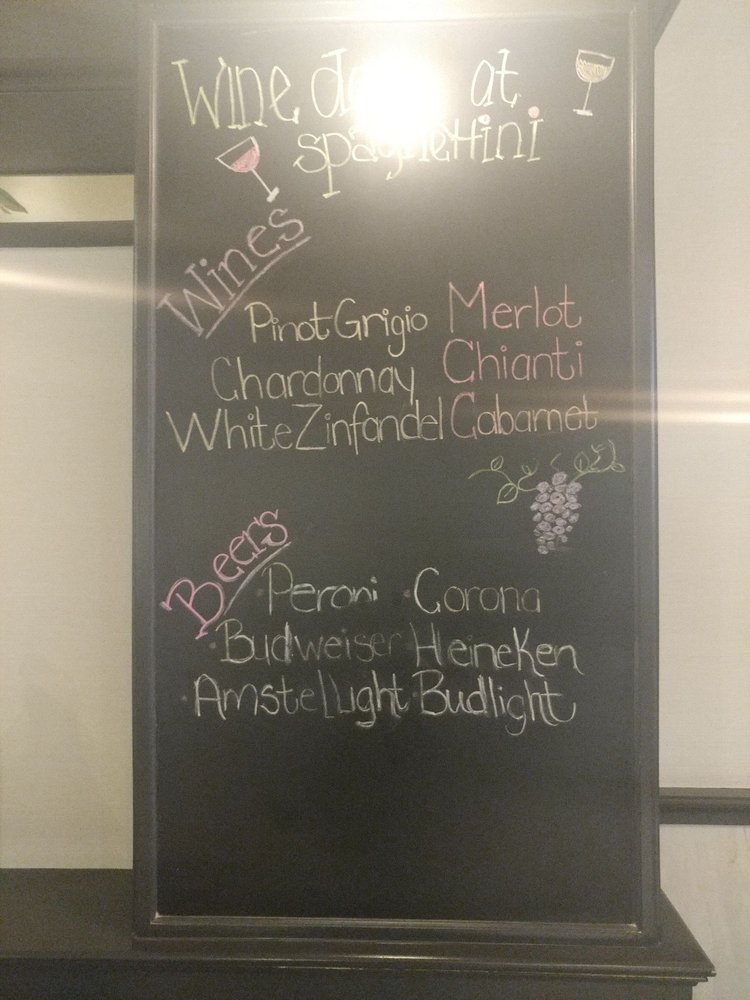 Wine at
spaghettini
Wines
Pinot Grigio Merlot
Chardonnay Chianti
White Zinfandel Cabarnet
Beers
·Peroni ·Corona
·Budweiser ·Heineken
·Amstel Light ·Budlight